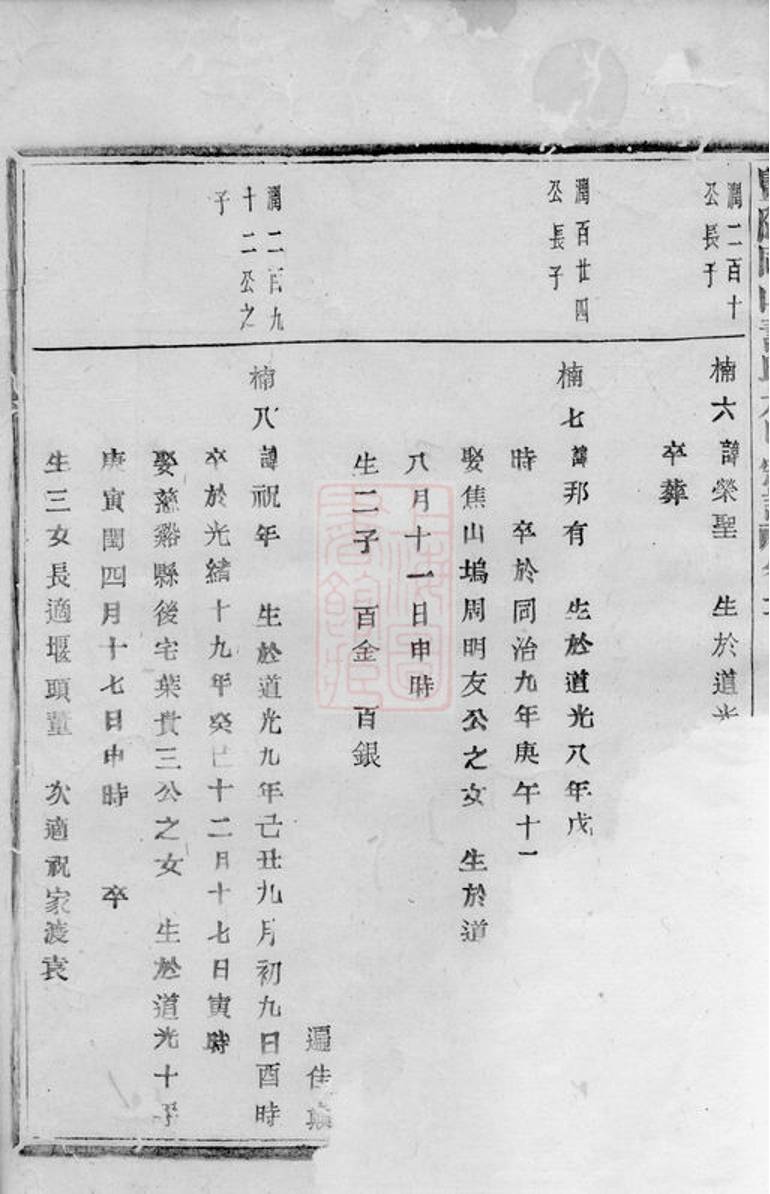 潤二百十
公長子
楠六諱榮聖 生於道光
卒葬
潤百廿四
公長子
楠七諱邦有 生於道光八年戊
時 卒於同治九年庚午十一
娶焦山塢周明友公之女 生於道
八月十一日申時
生二子 百金 百銀
遍佳
潤二百九
十二公之
子
楠八諱祝年 生於道光九年己丑九月初九日酉時
卒於光緒十九年癸巳十二月十七日寅時
娶慈谿縣後宅葉貴三公之女 生於道光十年
庚寅閏四月十七日申時 卒
生三女長適堰頭董 次適祝家渡袁